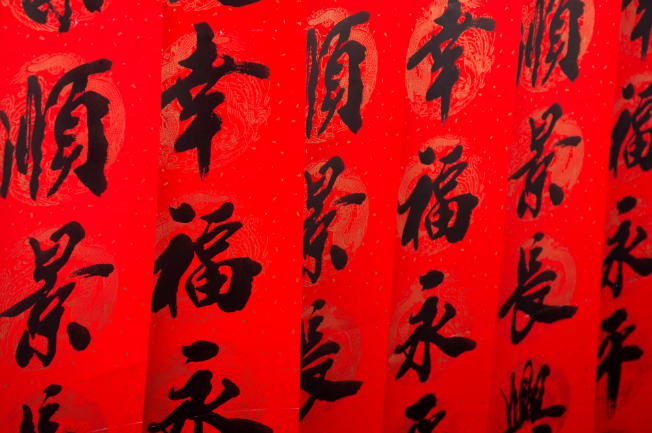 幸福永平
順景長興
幸福永
順景長
幸福永
順景